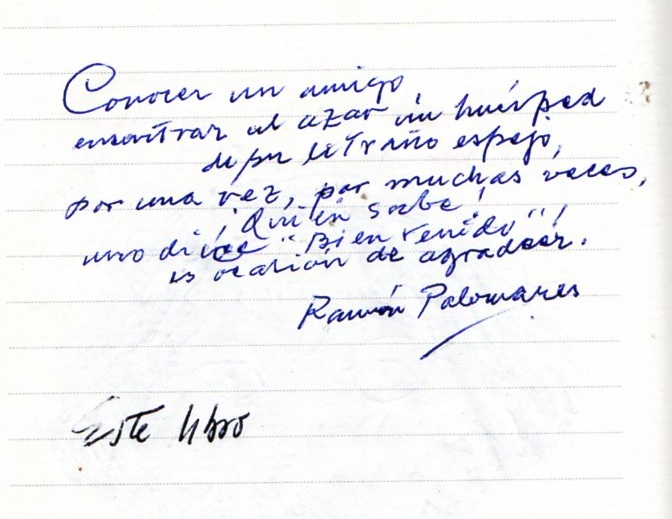 Conocer un amigo
encontrar al azar un huésped
de por extraño espejo,
por una vez, por muchas veces,
¡Quién sabe!
uno dice "Bienvenido"!
es ocasión de agradecer.
Ramón Palomares
Este libro